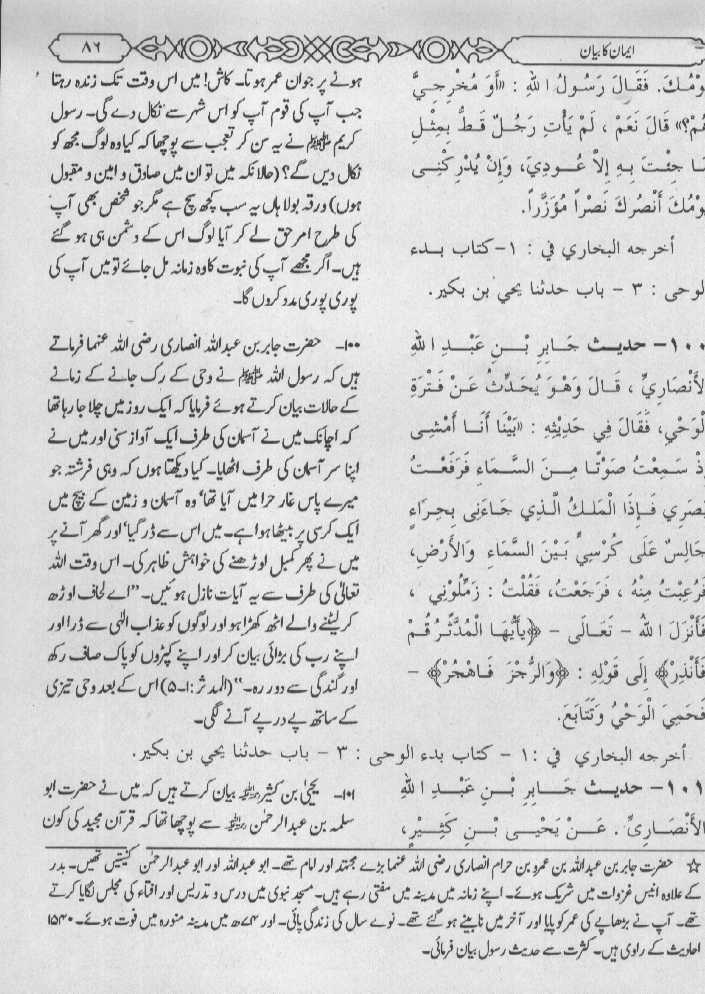 ۸۶
ایمان کا بیان
ـومُكَ. فَقَـالَ رَسُـولُ اللهِ : «أَوَ مُخْرِجِيَّ
هُمْ؟» قَالَ نَعَمْ ، لَمْ يَأْتِ رَجُلٌ قَـطُّ بِمِثْلِ
ـا جِئْتَ بِهِ إِلاَّ عُـودِيَ، وَإِنْ يُدْرِكْنِـى
ـومُكَ أَنْصُرْكَ نَصْراً مُؤَزَّراً.
أخرجه البخاري في : ١-كتاب بـدء
لوحى : ٣ - باب حدثنا يحي بن بكير.
١٠٠- حديث جَـابِرِ بْـنِ عَبْـدِ اللهِ
لأَنْصَارِيِّ ، قَـالَ وَهْـوَ يُحَدِّثُ عَنْ فَـتْرَةِ
لْوَحْيِ، فَقَالَ فِي حَدِيْثِهِ : «بَيْنَا أَنَـا أَمْشِـى
ذْ سَـمِعْتُ صَوْتًـا مِـنَ السَّـمَاءِ فَرَفَعْـتُ
ـصَرِي فَـإِذَا الْمَلَـكُ الَّـذِي جَـاءَنِى بِحِـرَاءٍ
جَالِسٌ عَلَى كُرْسِيٍّ بَيْنَ السَّمَاءِ وَالأَرْضِ،
فَرُعِبْتُ مِنْهُ ، فَرَجَعْتُ، فَقُلْتُ : زَمِّلُونِي ،
فَأَنْزَلَ اللهُ - تَعَـالَى - ﴿يأَيُّهَـا الْمُدَّثِّـرُ قُـمْ
فَأَنْذِرْ﴾ إِلَى قَوْلِهِ : ﴿وَالرُّجْزَ فَـاهْجُرْ﴾ -
فَحَمِيَ الْوَحْيُ وَتَتَابَعَ.
ہونے پر جوان عمر ہوتا۔ کاش! میں اس وقت تک زندہ رہتا
جب آپ کی قوم آپ کو اس شہر سے نکال دے گی۔ رسول
کریم ﷺ نے یہ سن کر تعجب سے پوچھا کہ کیا وہ لوگ مجھ کو
نکال دیں گے؟ (حالانکہ میں تو ان میں صادق و امین و مقبول
ہوں) ورقہ بولا ہاں یہ سب کچھ سچ ہے مگر جو شخص بھی آپ
کی طرح امر حق لے کر آیا لوگ اس کے دشمن ہی ہو گئے
ہیں۔ اگر مجھے آپ کی نبوت کا وہ زمانہ مل جائے تو میں آپ کی
پوری پوری مدد کروں گا۔
۱۰۰- حضرت جابر بن عبداللہ انصاری رضی اللہ عنہما فرماتے
ہیں کہ رسول اللہ ﷺ نے وحی کے رک جانے کے زمانے
کے حالات بیان کرتے ہوئے فرمایا کہ ایک روز میں چلا جا رہا تھا
کہ اچانک میں نے آسمان کی طرف ایک آواز سنی اور میں نے
اپنا سر آسمان کی طرف اٹھایا۔ کیا دیکھتا ہوں کہ وہی فرشتہ جو
میرے پاس غار حرا میں آیا تھا‘ وہ آسمان و زمین کے بیچ میں
ایک کرسی پر بیٹھا ہوا ہے۔ میں اس سے ڈر گیا‘ اور گھر آنے پر
میں نے پھر کمبل اوڑھنے کی خواہش ظاہر کی۔ اس وقت اللہ
تعالیٰ کی طرف سے یہ آیات نازل ہوئیں۔ ”اے لحاف اوڑھ
کر لیٹنے والے اٹھ کھڑا ہو اور لوگوں کو عذاب الٰہی سے ڈرا اور
اپنے رب کی بڑائی بیان کر اور اپنے کپڑوں کو پاک صاف رکھ
اور گندگی سے دور رہ۔“ (المدثر:۱۔۵) اس کے بعد وحی تیزی
کے ساتھ پے در پے آنے لگی۔
أخرجه البخاري في :١ - كتاب بدء الوحى : ٣ - باب حدثنا يحي بن بكير.
١٠١- حديث جَـابِرِ بْـنِ عَبْـدِ اللهِ
الأَنْصَـارِيِّ . عَـنْ يَحْيَـى بْـنِ كَثِيْـرٍ،
۱۰۱- یحییٰ بن کثیر بیان کرتے ہیں کہ میں نے حضرت ابو
سلمہ بن عبدالرحمٰن سے پوچھا تھا کہ قرآن مجید کی کون
☆ حضرت جابر بن عبداللہ بن عمرو بن حرام انصاری رضی اللہ عنہما بڑے مجتہد اور امام تھے۔ ابو عبداللہ اور ابو عبدالرحمٰن کنیتیں تھیں۔ بدر
کے علاوہ انیس غزوات میں شریک ہوئے۔ اپنے زمانہ میں مدینہ میں مفتی رہے ہیں۔ مسجد نبوی میں درس و تدریس اور افتاء کی مجلس لگایا کرتے
تھے۔ آپ نے بڑھاپے کی عمر کو پایا اور آخر میں نابینے ہو گئے تھے۔ نوے سال کی زندگی پائی۔ اور ۷۴ھ میں مدینہ منورہ میں فوت ہوئے۔ ۱۵۴۰
احادیث کے راوی ہیں۔ کثرت سے حدیث رسول بیان فرمائی۔